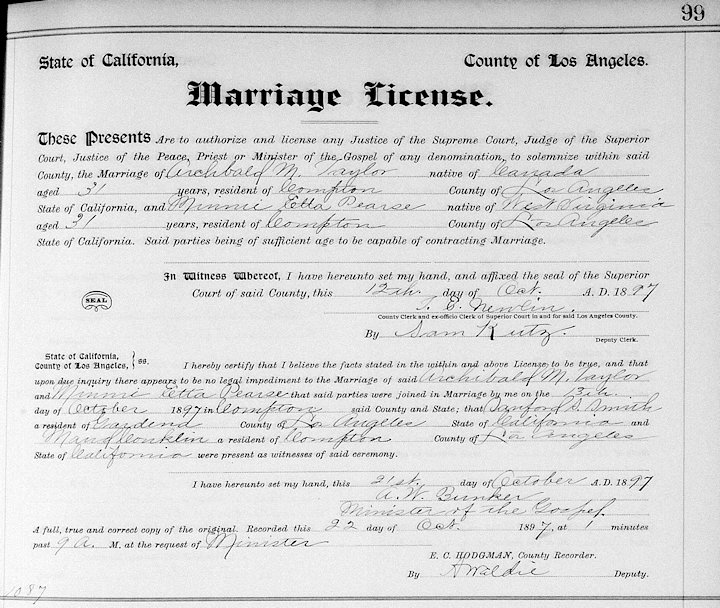 99
State of California, County of Los Angeles.
Marriage License.
These Presents Are to authorize and license any Justice of the Supreme Court, Judge of the Superior
Court, Justice of the Peace, Priest or Minister of the Gospel of any denomination, to solemnize within said
County, the Marriage of Archbald M. Taylor native of Canada
aged 31 years, resident of Compton County of Los Angeles
State of California, and Minnie Etta Pearse native of West Virginia
aged 31 years, resident of Compton County of Los Angeles
State of California. Said parties being of sufficient age to be capable of contracting Marriage.
In Witness Whereof, I have hereunto set my hand, and affixed the seal of the Superior
SEAL
Court of said County, this 12th day of Oct. A. D. 1897
T. E. Newlin.
County Clerk and ex-officio Clerk of Superior Court in and for said Los Angeles County.
By Sam Kutz.
Deputy Clerk.
State of California,
County of Los Angeles, } ss. I hereby certify that I believe the facts stated in the within and above License to be true, and that
upon due inquiry there appears to be no legal impediment to the Marriage of said Archbald M. Taylor
and Minnie Etta Pearse that said parties were joined in Marriage by me on the 13th
day of October 1897 in Compton said County and State; that Sanford S. Smith
a resident of County of Los Angeles State of California and
Conklin a resident of Compton County of Los Angeles
State of California were present as witnesses of said ceremony.
I have hereunto set my hand, this 21st. day of October A. D. 1897
A. W. Bunker
Minister of the Gospel.
A full, true and correct copy of the original. Recorded this 22 day of Oct. 1897, at 1 minutes
past 9 A. M. at the request of Minister
E. C. HODGMAN, County Recorder.
By A Waldie Deputy.
1087